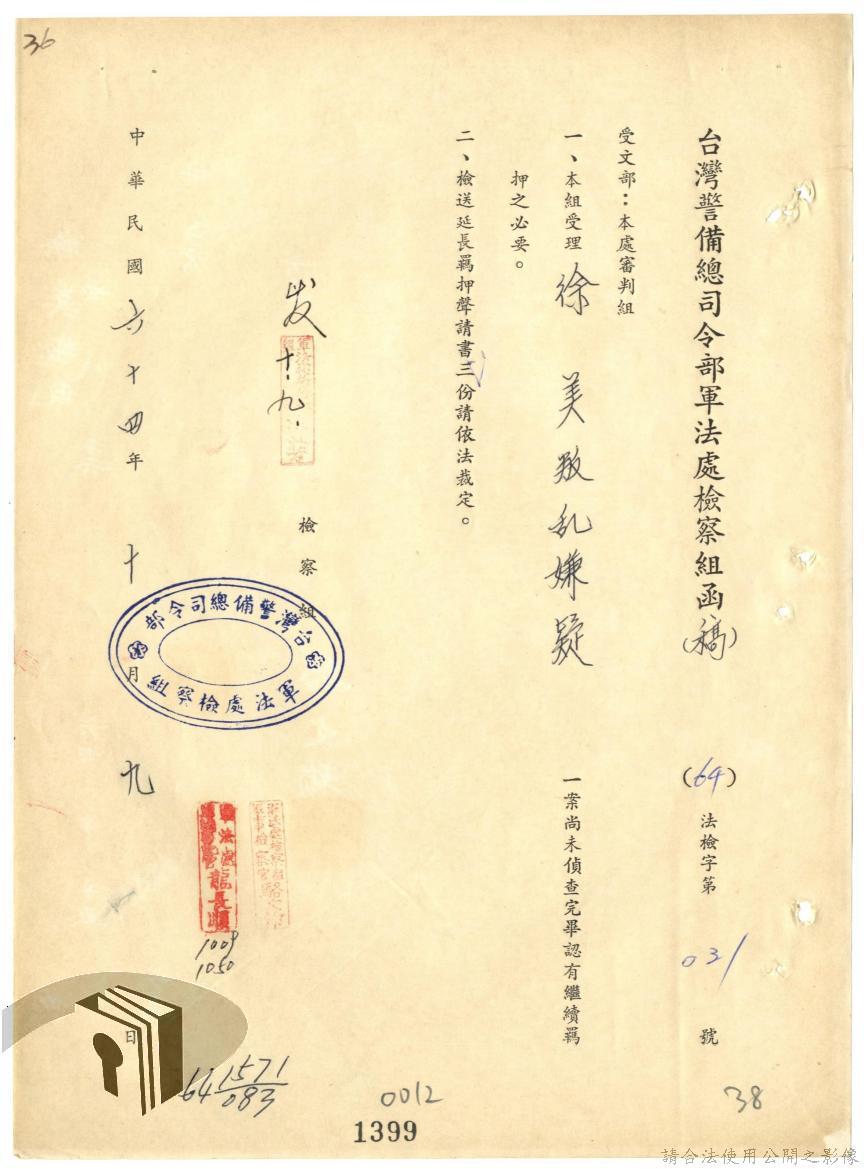 36
台灣警備總司令部軍法處檢察組函(稿)
(64)法檢字第031號
受文部：本處審判組
一、本組受理徐 美叛乱嫌疑一案尚未偵查完畢認有繼續羈
押之必要。
二、檢送延長羈押聲請書三份請依法裁定。
檢察組
发
十.九.
台灣警備總司令部
軍法處檢察組
軍法處
龍長順
1009
1050
中華民國六十四年十月九日
64 1571
083
0012
38
1399
請合法使用公開之影像